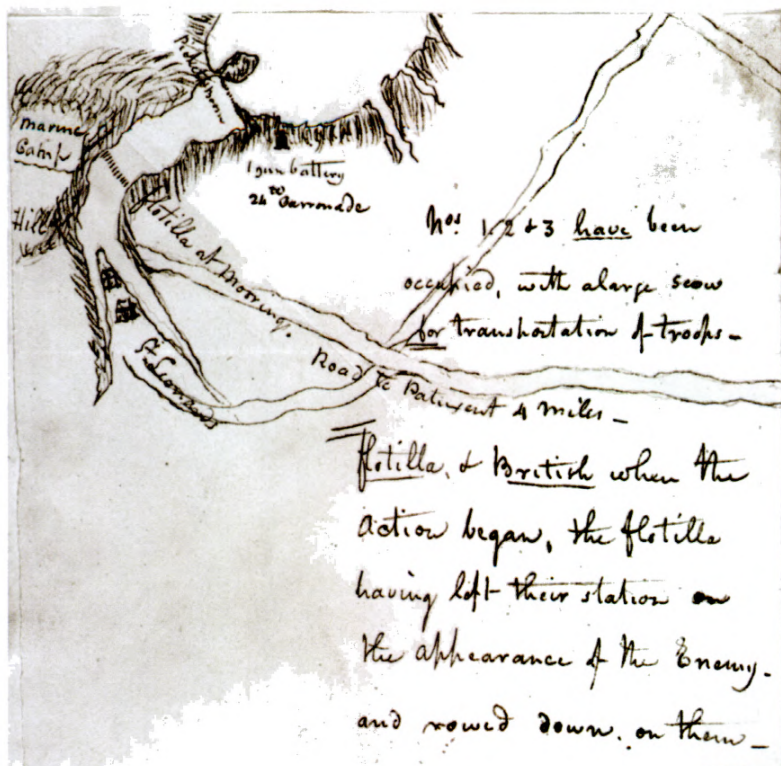 Marine
Camp
1 gun battery
to
24 Carronade
Hill
Flotilla at Mooring.
St Leonards
Road to Patuxent 4 miles –
Nos 1. 2 & 3 have been
occupied, with a large scow
for transportation of troops –
flotilla, & British when the
action began, the flotilla
having left their station on
the appearance of the Enemy.
and rowed down. on them –